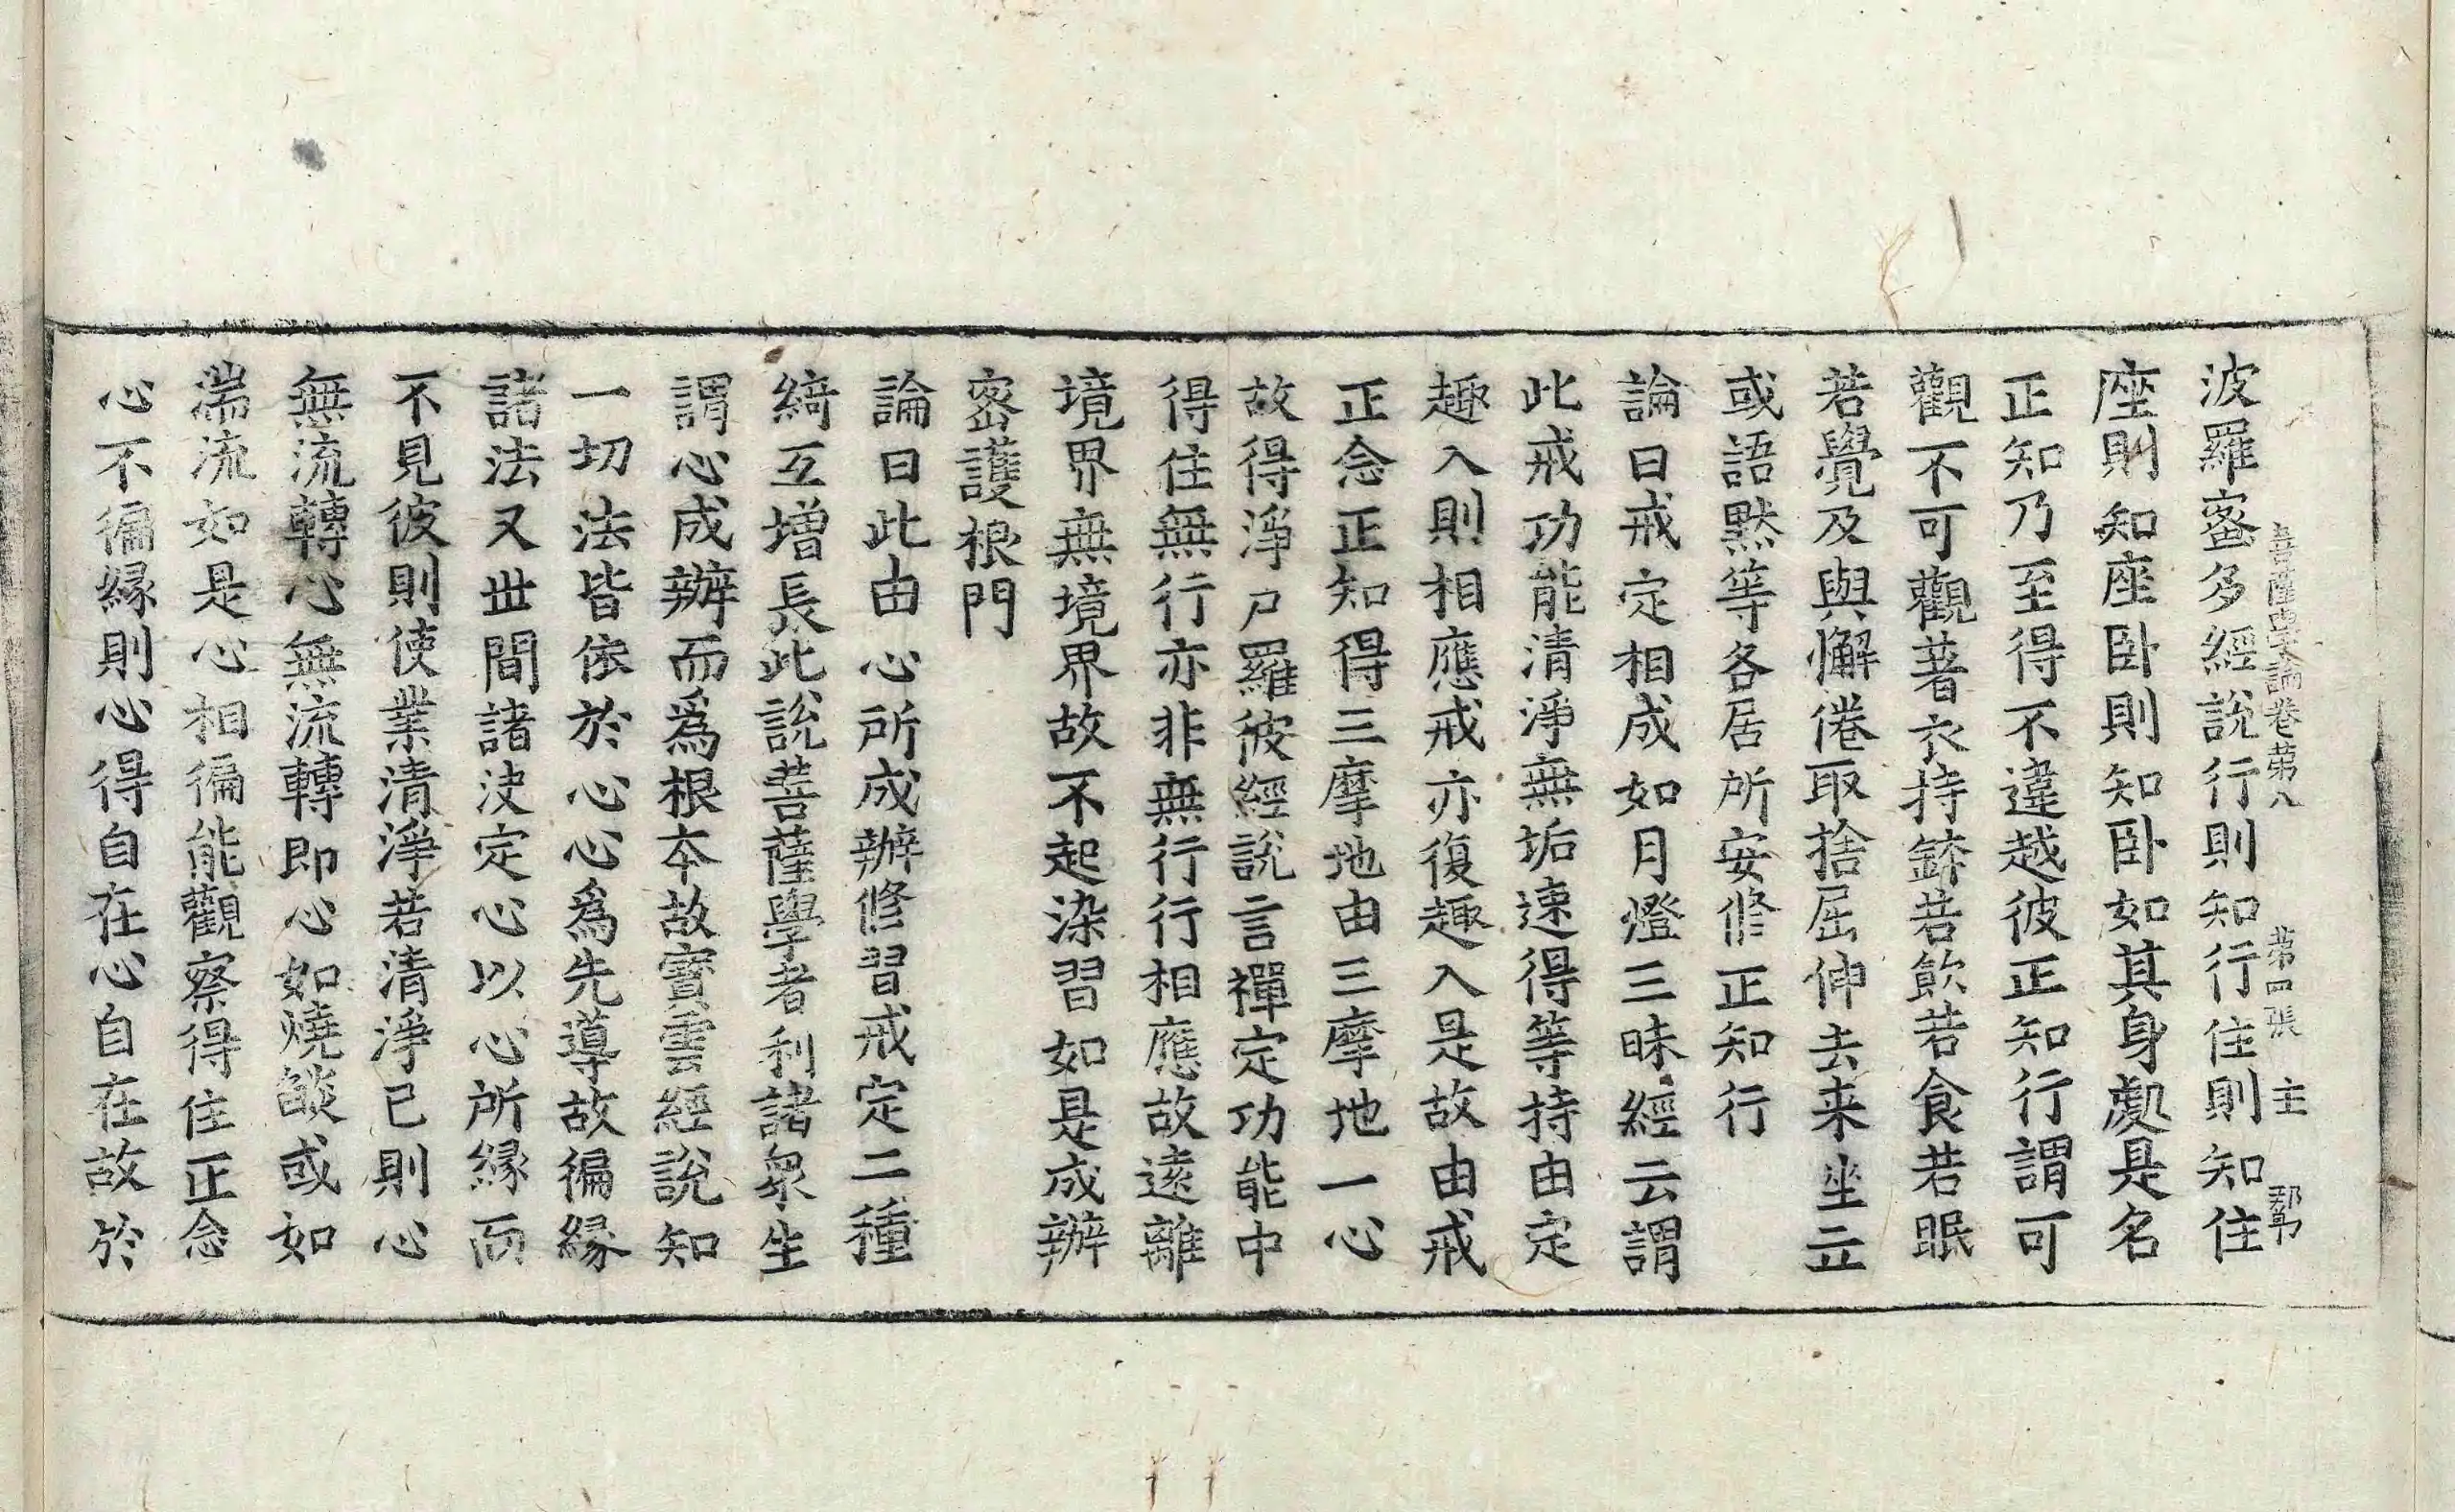 菩薩學論卷第八　第四張　主
波羅蜜多經說行則知行住則知住
座則知座卧則知卧如其身處是名
正知乃至得不違越彼正知行謂可
觀不可觀著衣持鉢若飲若食若眠
若覺及與懈倦取捨屈伸去来坐立
或語默等各居所安修正知行
論曰戒定相成如月燈三昧經云謂
此戒功能清淨無垢速得等持由定
趣入則相應戒亦復趣入是故由戒
正念正知得三摩地由三摩地一心
故得淨尸羅彼經說言禪定功能中
得住無行亦非無行行相應故遠離
境界無境界故不起染習如是成辦
密護根門
論曰此由心所成辦修習戒定二種
綺互增長此說菩薩學者利諸衆生
謂心成辦而爲根本故寶雲經說知
一切法皆依於心心爲先導故徧緣
諸法又世間諸法定心以心所緣而
不見彼則使業清淨若清淨已則心
無流轉心無流轉即心如燒燄或如
湍流如是心相徧能觀察得住正念
心不徧緣則心得自在心自在故於